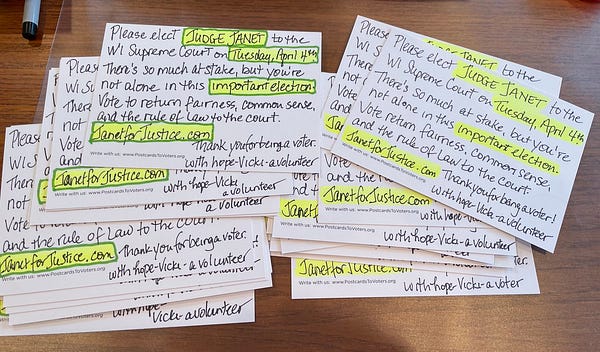 Please elect JUDGE JANET to the
WI Supreme Court on Tuesday, April 4th
There's so much at stake, but you're
not alone in this important election.
Vote to return fairness, common sense,
and the rule of law to the court.
JanetforJustice.com
Thank you for being a voter.
Write with us: www.PostcardsToVoters.org
with hope-Vicki-
a volunteer
Please
not
and
JanetforJustice.com
Write with us: www.PostcardsToVoters.org
with hope-Vicki-
a volunteer
Please
WI S
There
not
Vote
and the rule of Law to the court.
JanetforJustice.com
Thank you for being a voter.
Write with us: www.PostcardsToVoters.org
with hope-Vicki-a volunteer
with hope
Vicki-a volunteer
Please elect JUDGE JANET to the
WI Supreme Court on Tuesday, April 4th.
There's so much at stake, but you're
not alone in this important election.
Vote to return fairness, common sense,
and the rule of law to the court.
JanetforJustice.com
Thank you for being a voter!
Write with us: www.PostcardsToVoters.org
with hope-Vicki-
a volunteer
Please
WI
There
not
Vote
and
JanetforJustice.com
Write with us: www.PostcardsToVoters.org
JanetforJustice.com
Write with us: www.PostcardsToVoters.org
with hope-Vicki-a voter